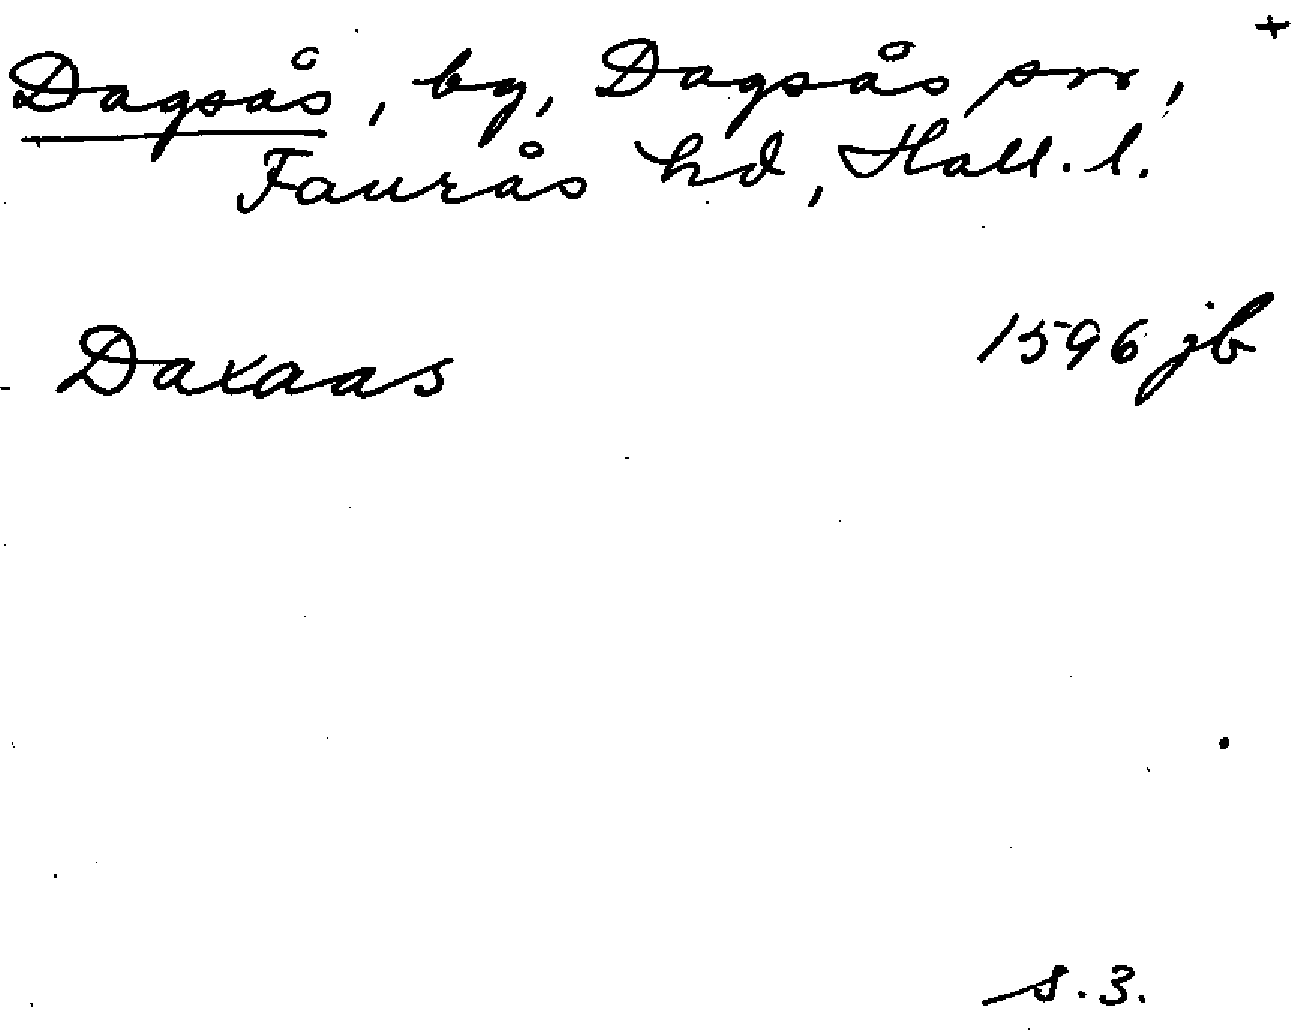 +
Dagsås, by, Dagsås sn,
Faurås hd, Hall. l.
Daxaas 1596 jb
s. 3.